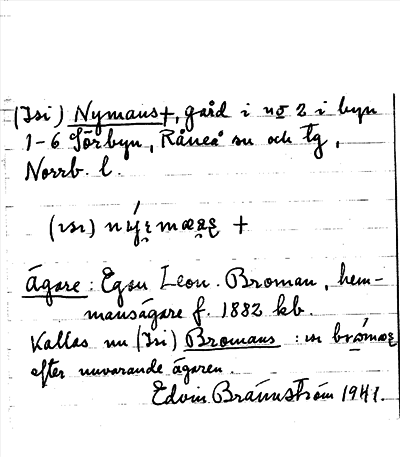 (Isi) Nymans +, gård i no 2 i byn
1-6 Törbyn, Råneå sn och tg,
Norrb. l.
(ɩsɩ)
+
Ägare: Egon Leon. Broman, hem-
mansägare f. 1882 kb.
Kallas nu (Isi) Bromans :
efter nuvarande ägaren.
Edvin Brännström 1941.